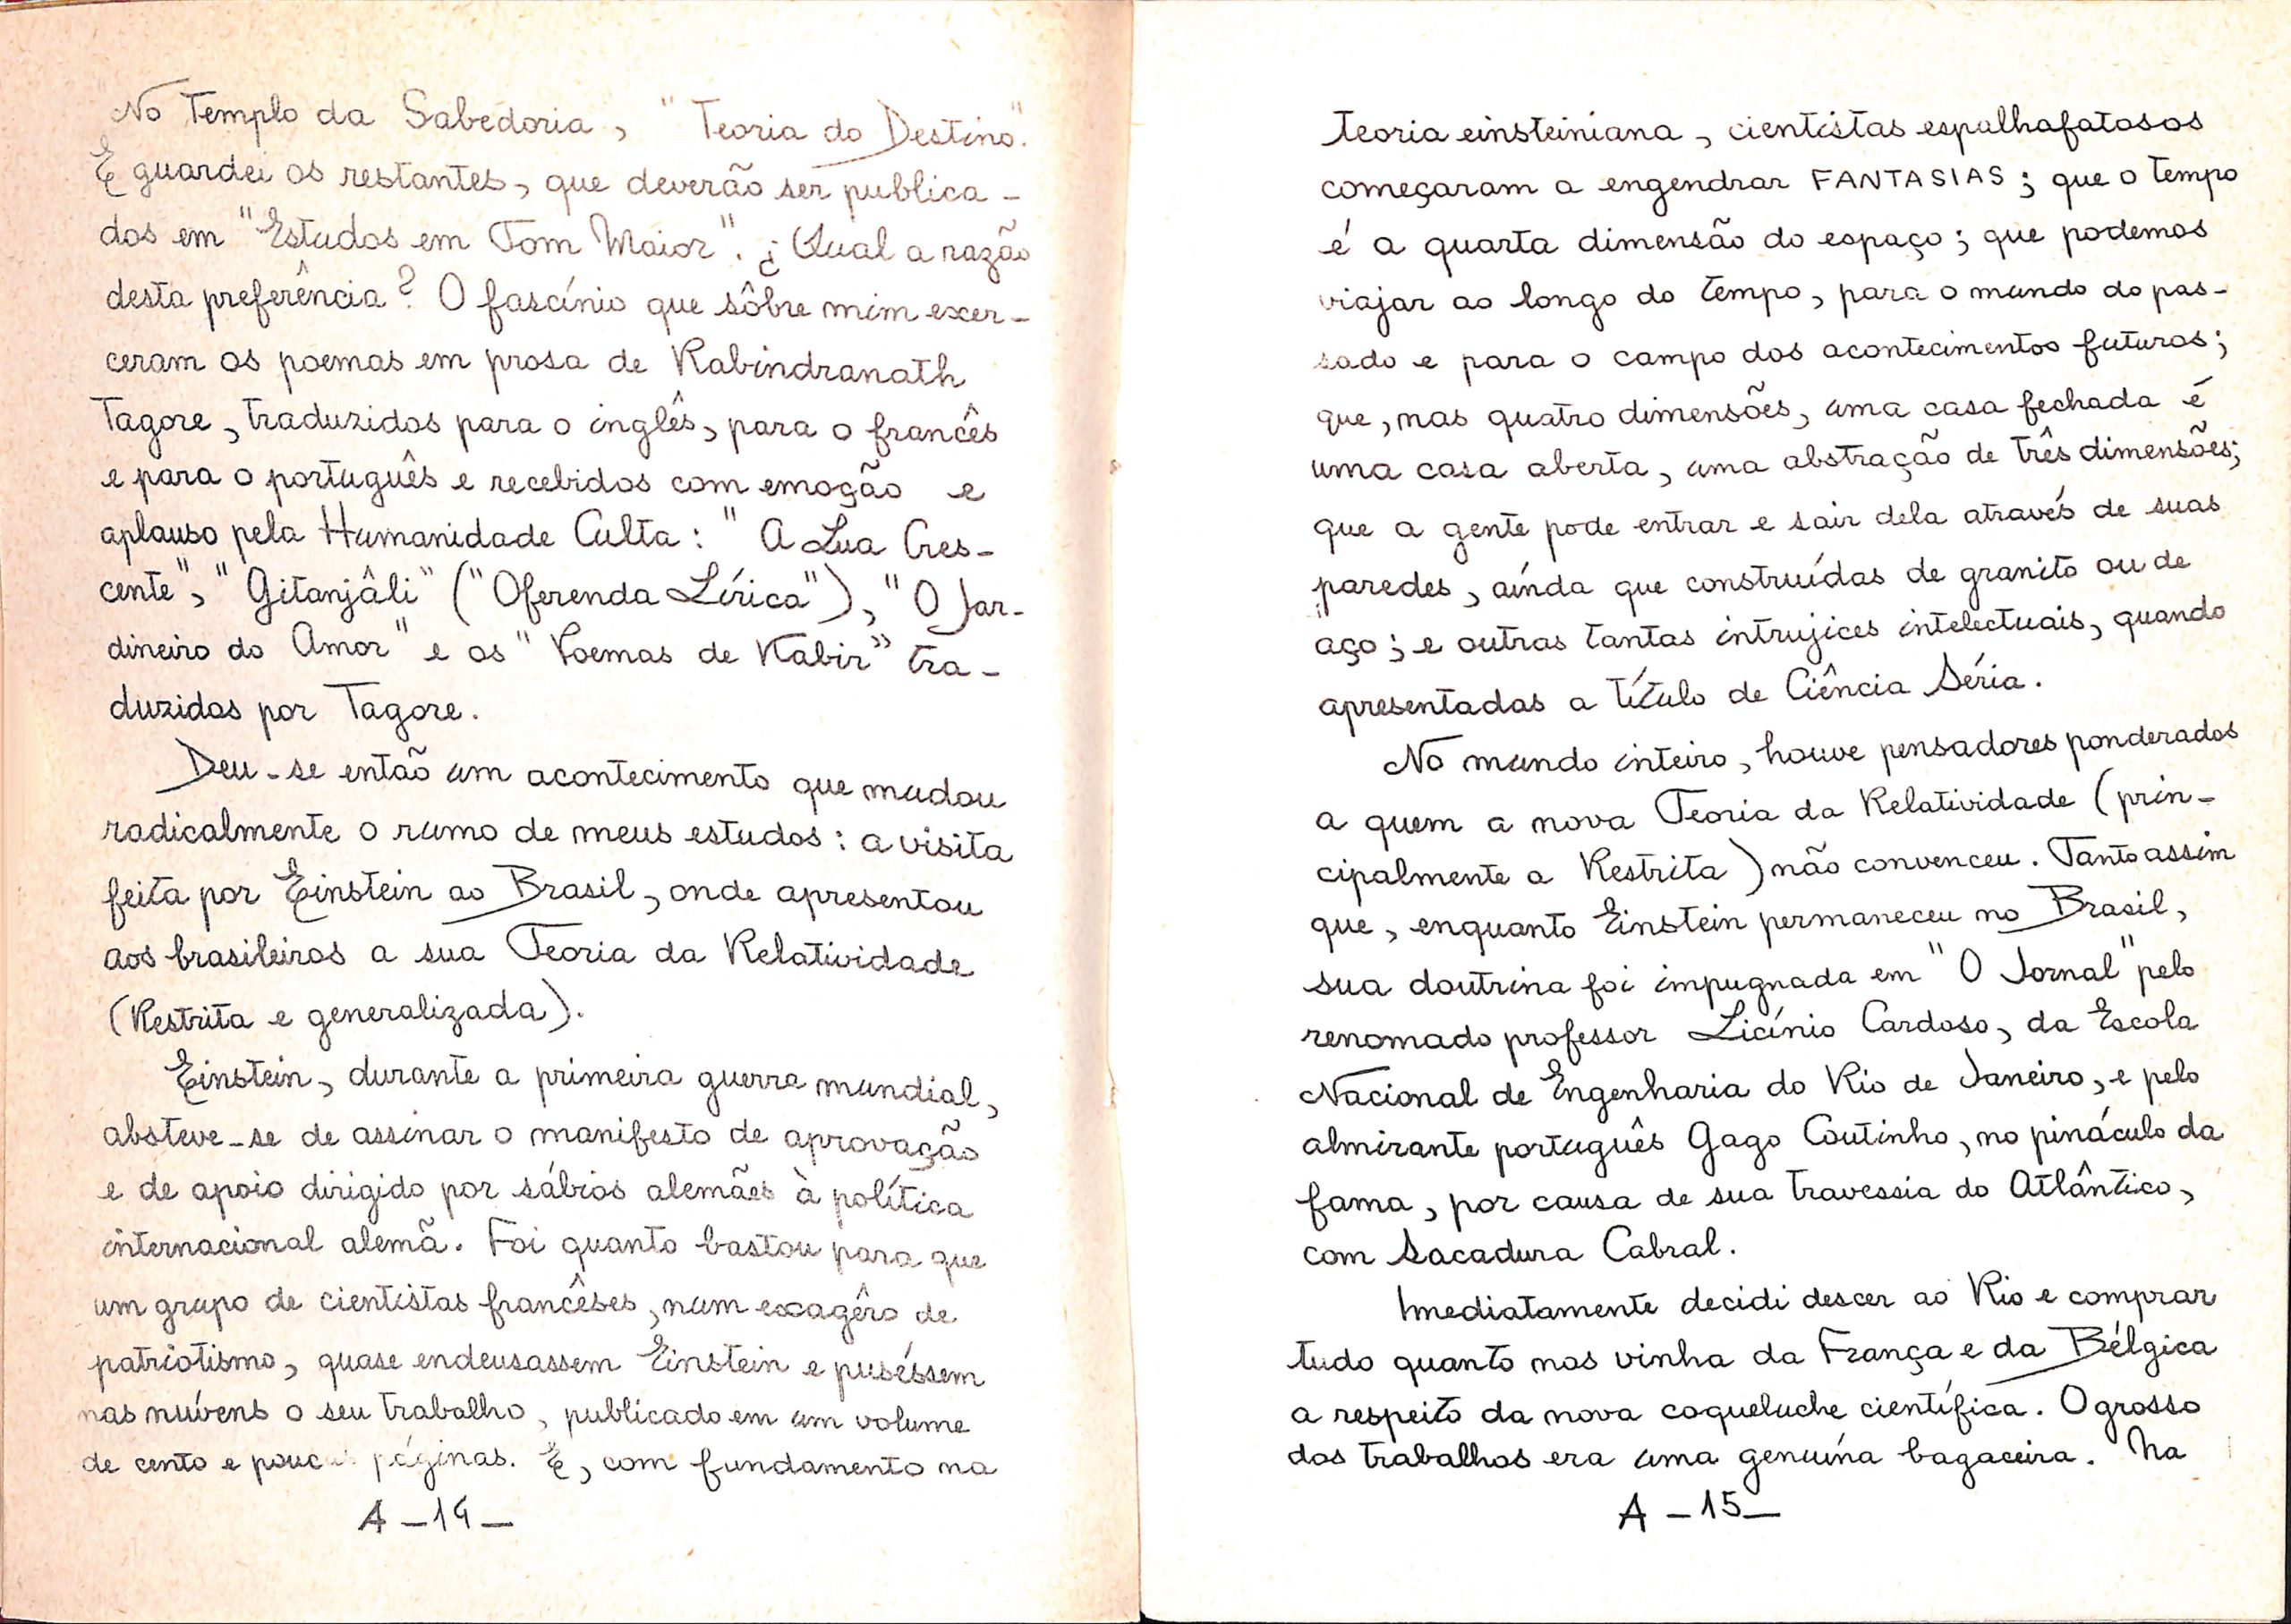 "No Templo da Sabedoria, "Teoria do Destino".
E guardei os restantes, que deverão ser publica-
dos em "Estudos em Tom Maior". ¿Qual a razão
desta preferência? O fascínio que sôbre mim exer-
ceram os poemas em prosa de Rabindranath
Tagore, traduzidos para o inglês, para o francês
e para o português e recebidos com emoção e
aplauso pela Humanidade Culta: "A Lua Cres-
cente", "Gitanjâli" ("Oferenda Lírica"), "O Jar-
dineiro do Amor" e os "Poemas de Kabir" tra-
duzidos por Tagore.
Deu-se então um acontecimento que mudou
radicalmente o rumo de meus estudos: a visita
feita por Einstein ao Brasil, onde apresentou
aos brasileiros a sua Teoria da Relatividade
(Restrita e generalizada).
Einstein, durante a primeira guerra mundial,
absteve-se de assinar o manifesto de aprovação
e de apoio dirigido por sábios alemães à política
internacional alemã. Foi quanto bastou para que
um grupo de cientistas francêses, num exagêro de
patriotismo, quase endeusassem Einstein e puséssem
nas nuvens o seu trabalho, publicado em um volume
de cento e poucas páginas. E, com fundamento na
A-14-
teoria einsteiniana, cientistas espalhafatosos
começaram a engendrar FANTASIAS; que o tempo
é a quarta dimensão do espaço; que podemos
viajar ao longo do tempo, para o mundo do pas-
sado e para o campo dos acontecimentos futuros;
que, nas quatro dimensões, uma casa fechada é
uma casa aberta, uma abstração de três dimensões;
que a gente pode entrar e sair dela através de suas
paredes, aínda que construídas de granito ou de
aço; e outras tantas intrujices intelectuais, quando
apresentadas a título de Ciência Séria.
No mundo inteiro, houve pensadores ponderados
a quem a nova Teoria da Relatividade (prin-
cipalmente a Restrita) não convenceu. Tanto assim
que, enquanto Einstein permaneceu no Brasil,
sua doutrina foi impugnada em "O Jornal" pelo
renomado professor Licínio Cardoso, da Escola
Nacional de Engenharia do Rio de Janeiro, e pelo
almirante português Gago Coutinho, no pináculo da
fama, por causa de sua travessia do Atlântico,
com Sacadura Cabral.
Imediatamente decidi descer ao Rio e comprar
tudo quanto nos vinha da França e da Bélgica
a respeito da nova coqueluche científica. O grosso
dos trabalhos era uma genuína bagaceira. Na
A-15-